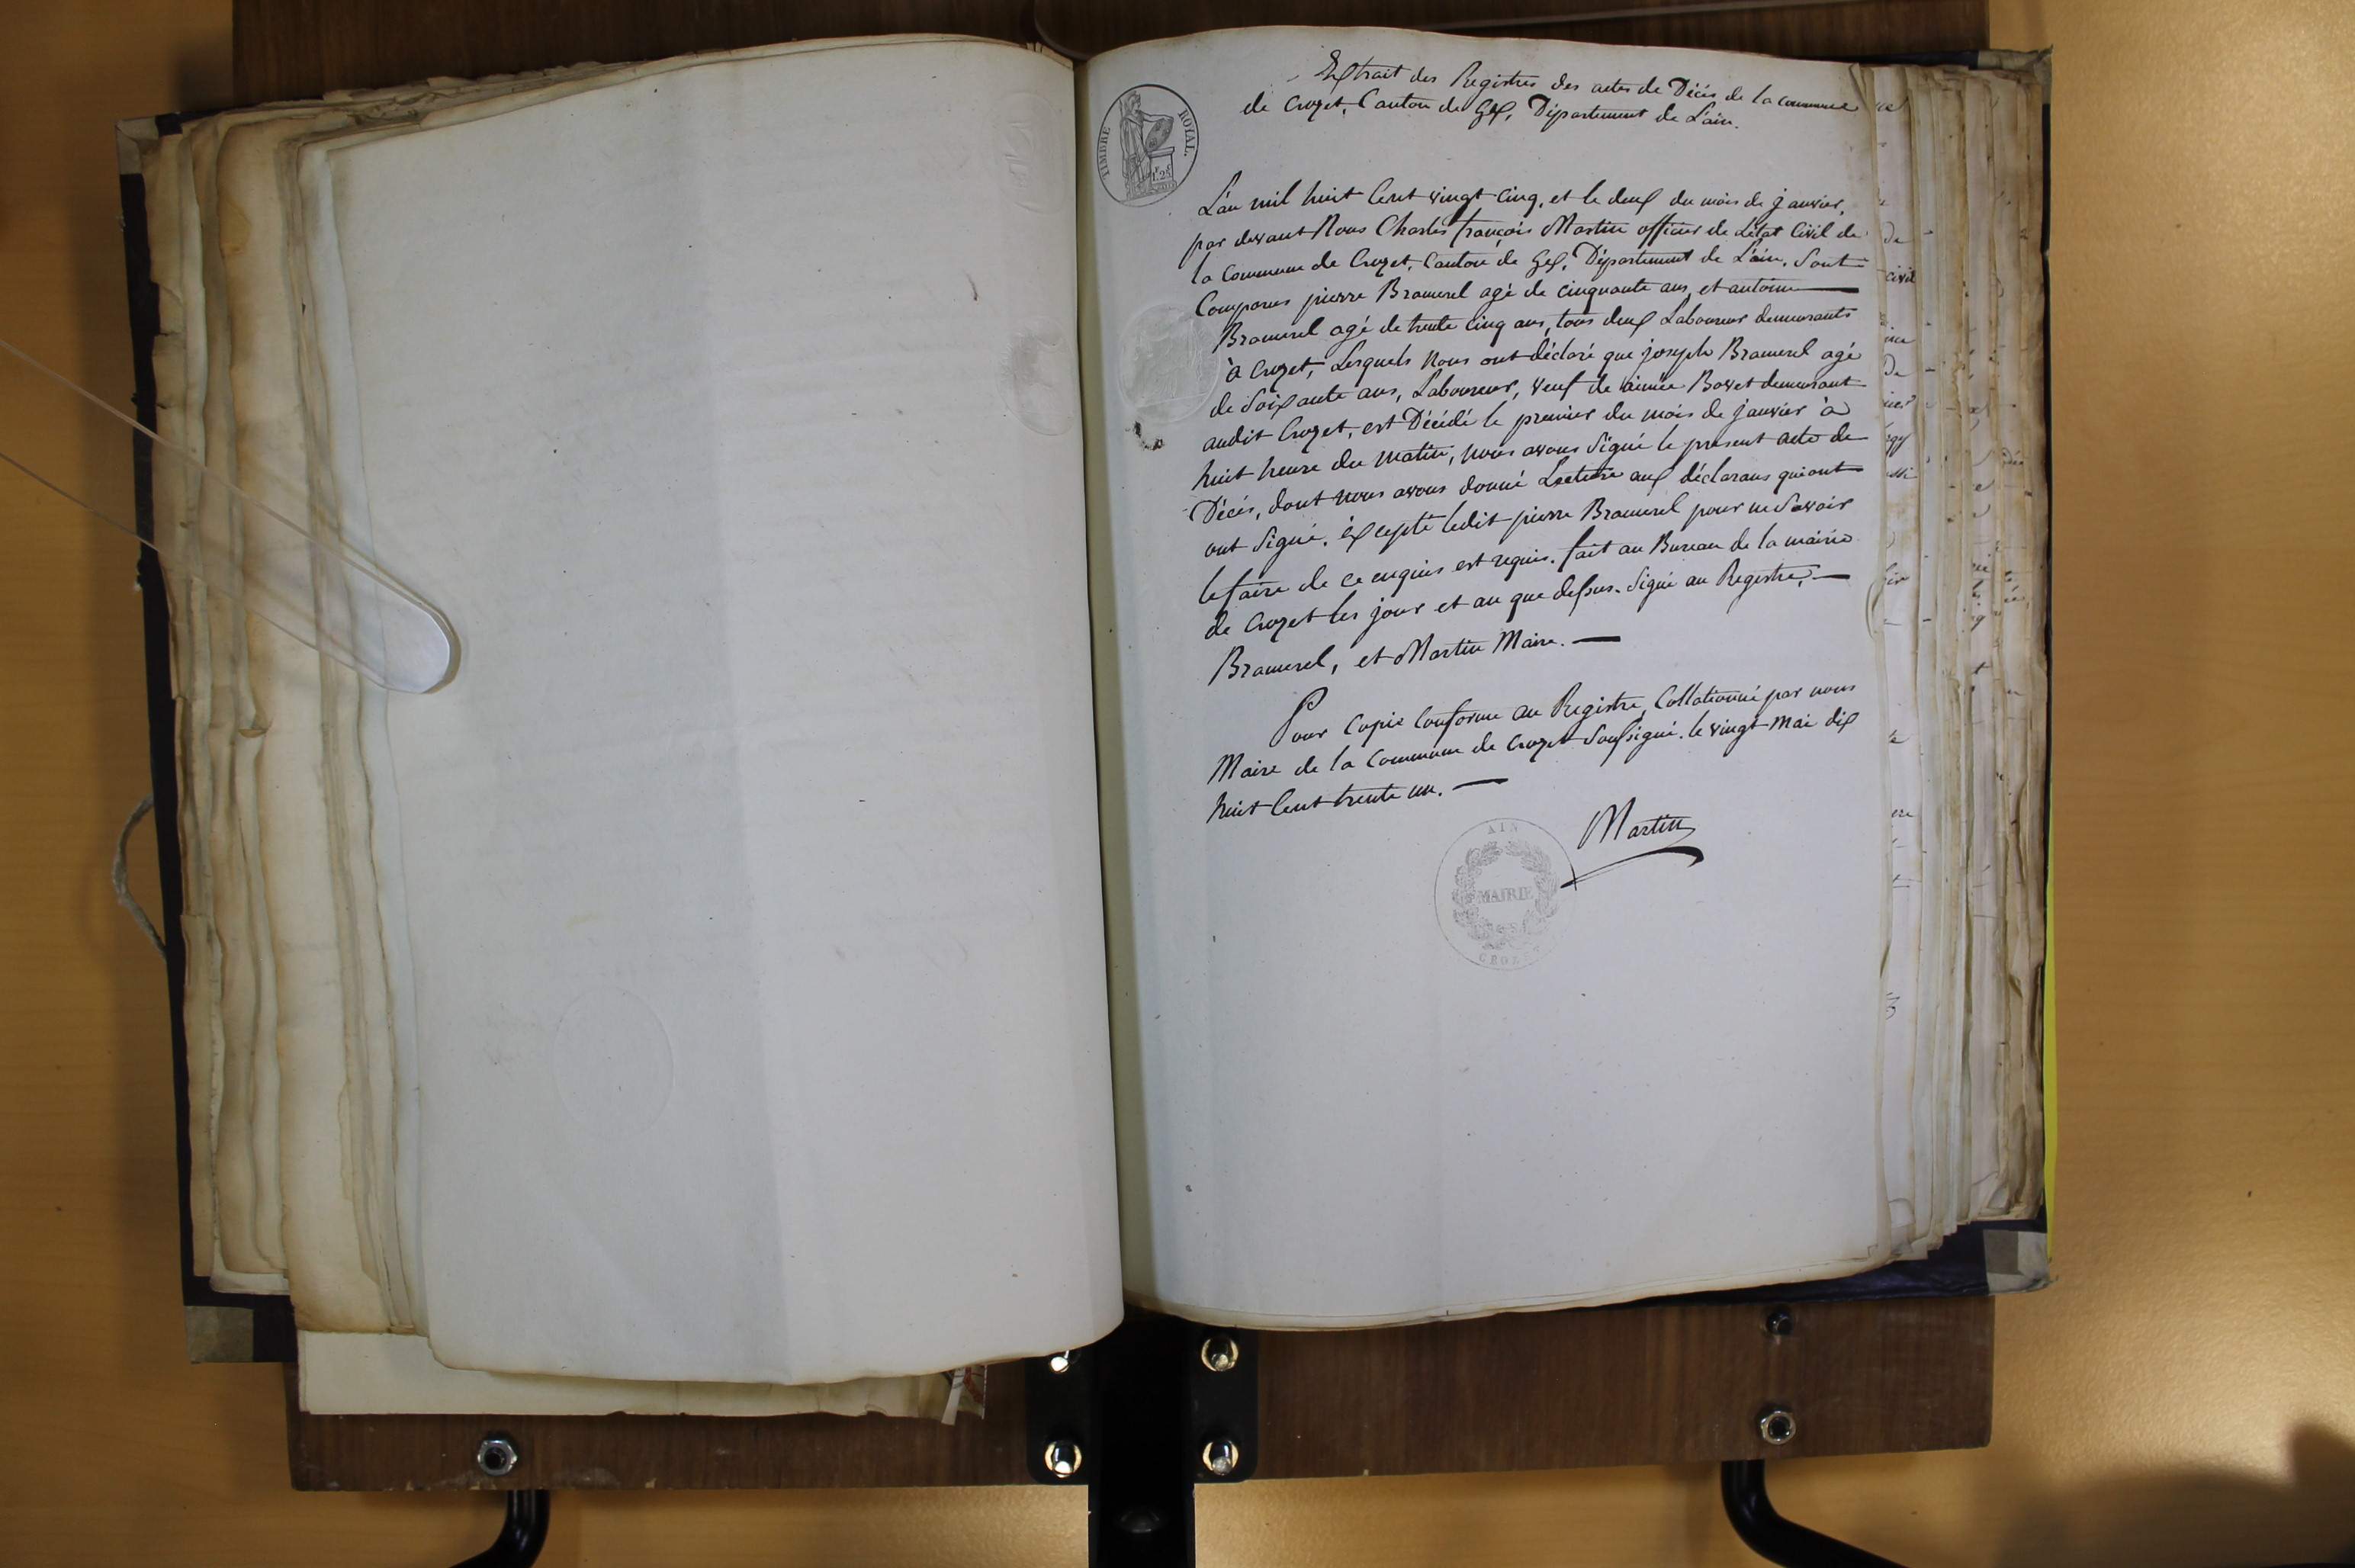 Extrait des Registres des actes de Décès de la commune
de Crozet, Canton de Gex, Département de L'ain.
TIMBRE ROYAL.
L'an mil huit Cent vingt-cinq, et le deux du mois de janvier,
par devant Nous Charles françois Martin officier de L'état Civil de
la Commune de Crozet, Canton de Gex, Département de L'ain, Sont
Comparus pierre Bramerel agé de cinquante ans, et antoine
Bramerel agé de trente cinq ans, tous deux Laboureur demeurants
à Crozet, Lesquels Nous ont déclaré que joseph Bramerel agé
de Soixante ans, Laboureur, veuf de aimée Bovet demeurant
audit Crozet, est Décédé le premier du mois de janvier à
huit heure du matin, nous avons Signé le présent acte de
Décès, dont nous avons donné Lecture aux déclarans qui ont
ont Signé, éxcepté ledit pierre Bramerel pour ne Savoir
le faire de ce enquis est requis. fait au Bureau de la mairie
de Crozet les jour et an que dessus. Signé au Registre,
Bramerel, et Martin Maire.
Pour Copie Conforme au Registre, Collationné par nous
Maire de la Commune de Crozet Soussigné. le vingt Mai dix
huit Cent trente un.
Martin
AIN
MAIRIE